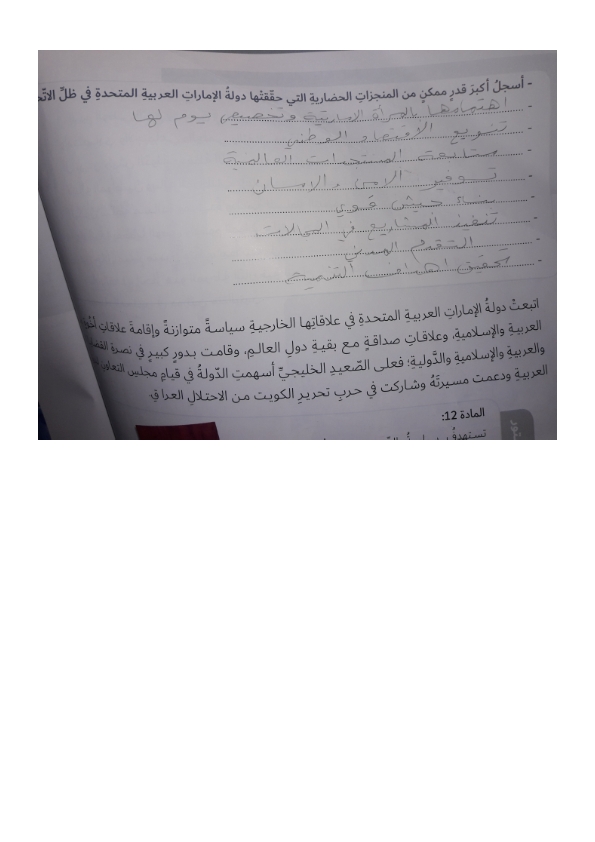 - أسجلُ أكبرَ قدرٍ ممكنٍ من المنجزاتِ الحضاريةِ التي حقّقتْها دولةُ الإماراتِ العربيةِ المتحدةِ في ظلِّ
- اهتمامها بالمرأة الإماراتية وتخصيص يوم لها
- تنويع الاقتصاد الوطني
- متابعة المستجدات العالمية
- توفير الامن والامان
- بناء جيش قوي
- تنفيذ المشاريع في المجالات
- التقدم
- تحقيق اهداف التنمية
اتبعتْ دولةُ الإماراتِ العربيةِ المتحدةِ في علاقاتِها الخارجيةِ سياسةً متوازنةً وإقامةَ علاقاتِ
العربيةِ والإسلاميةِ، وعلاقاتِ صداقةٍ مع بقيةِ دولِ العالمِ، وقامت بدورٍ كبيرٍ في نصرةِ
والعربيةِ والإسلاميةِ والدَّوليةِ؛ فعلى الصّعيدِ الخليجيِّ أسهمتِ الدّولةُ في قيامِ مجلسِ
العربيةِ ودعمت مسيرتَهُ وشاركت في حربِ تحريرِ الكويت من الاحتلالِ العراقي.
المادة 12: